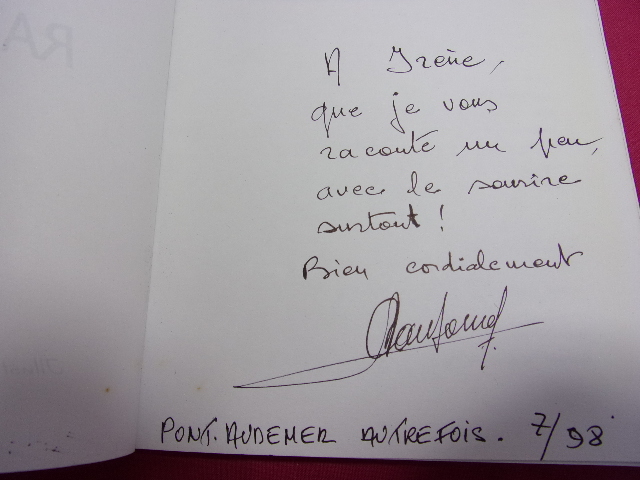 A Irène,
que je vous
raconte un peu,
avec le sourire
surtout !
Bien cordialement
PONT. AUDEMER AUTREFOIS. 7/98
RA